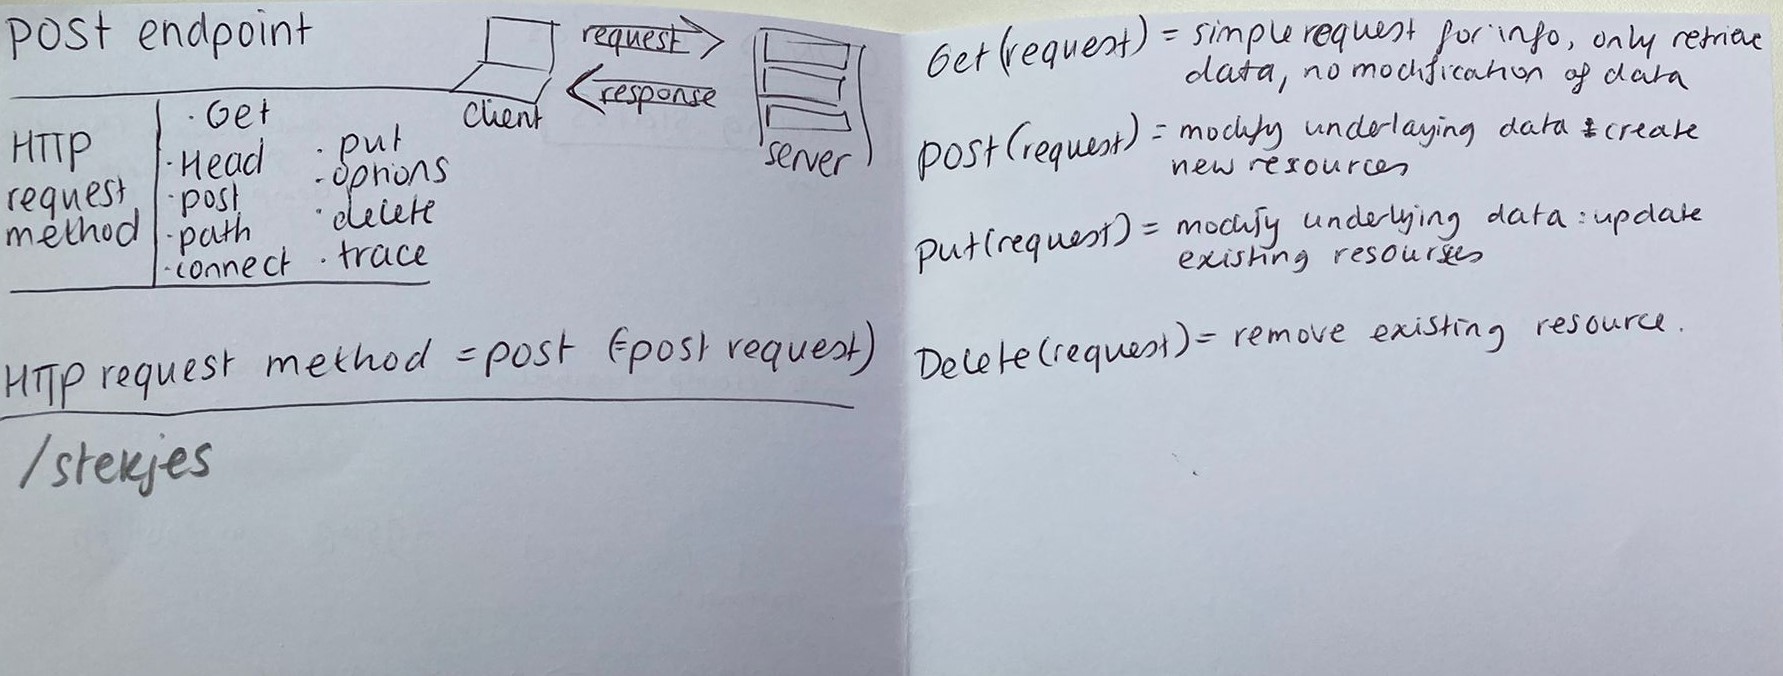 post endpoint
request
response
client
server
HTTP
request
method
· Get
· Head
· post
· path
· connect
· put
· options
· delete
· trace
HTTP request method = post (=post request)
/stekjes
Get (request) = simple request for info, only retrieve
data, no modification of data
post (request) = modify underlaying data : create
new resources
put (request) = modify underlying data : update
existing resourses
Delete (request) = remove existing resource.